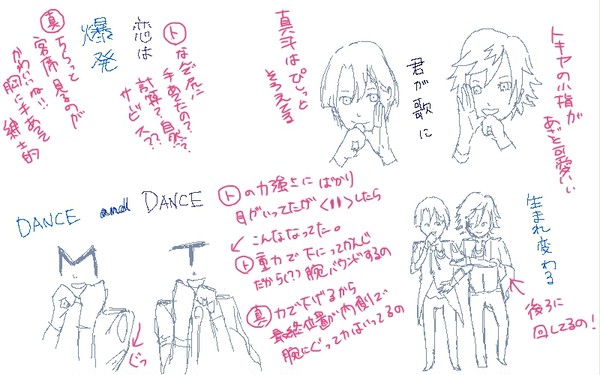 トキヤの小指が
あざと可愛い
君が歌に
真斗はぴしっと
そろえてる
ト なぜ尻に
手あてたの??
計算?自然?
サービス??
恋は
爆発
真 ちらっと
客席見るのが
かわいい!!
胸に手あてて
紳士的
DANCE and DANCE
M
T
ぐっ
ト の力強さに ばかり
目がいってたが したら
こんななってた。
ト 重力で下にってかんじ
だから(??)腕バウンドするの
真 力で下げるから
最終位置が内側で
腕にぐって力はいってるの
生まれ変わる
後ろに
回してるの!